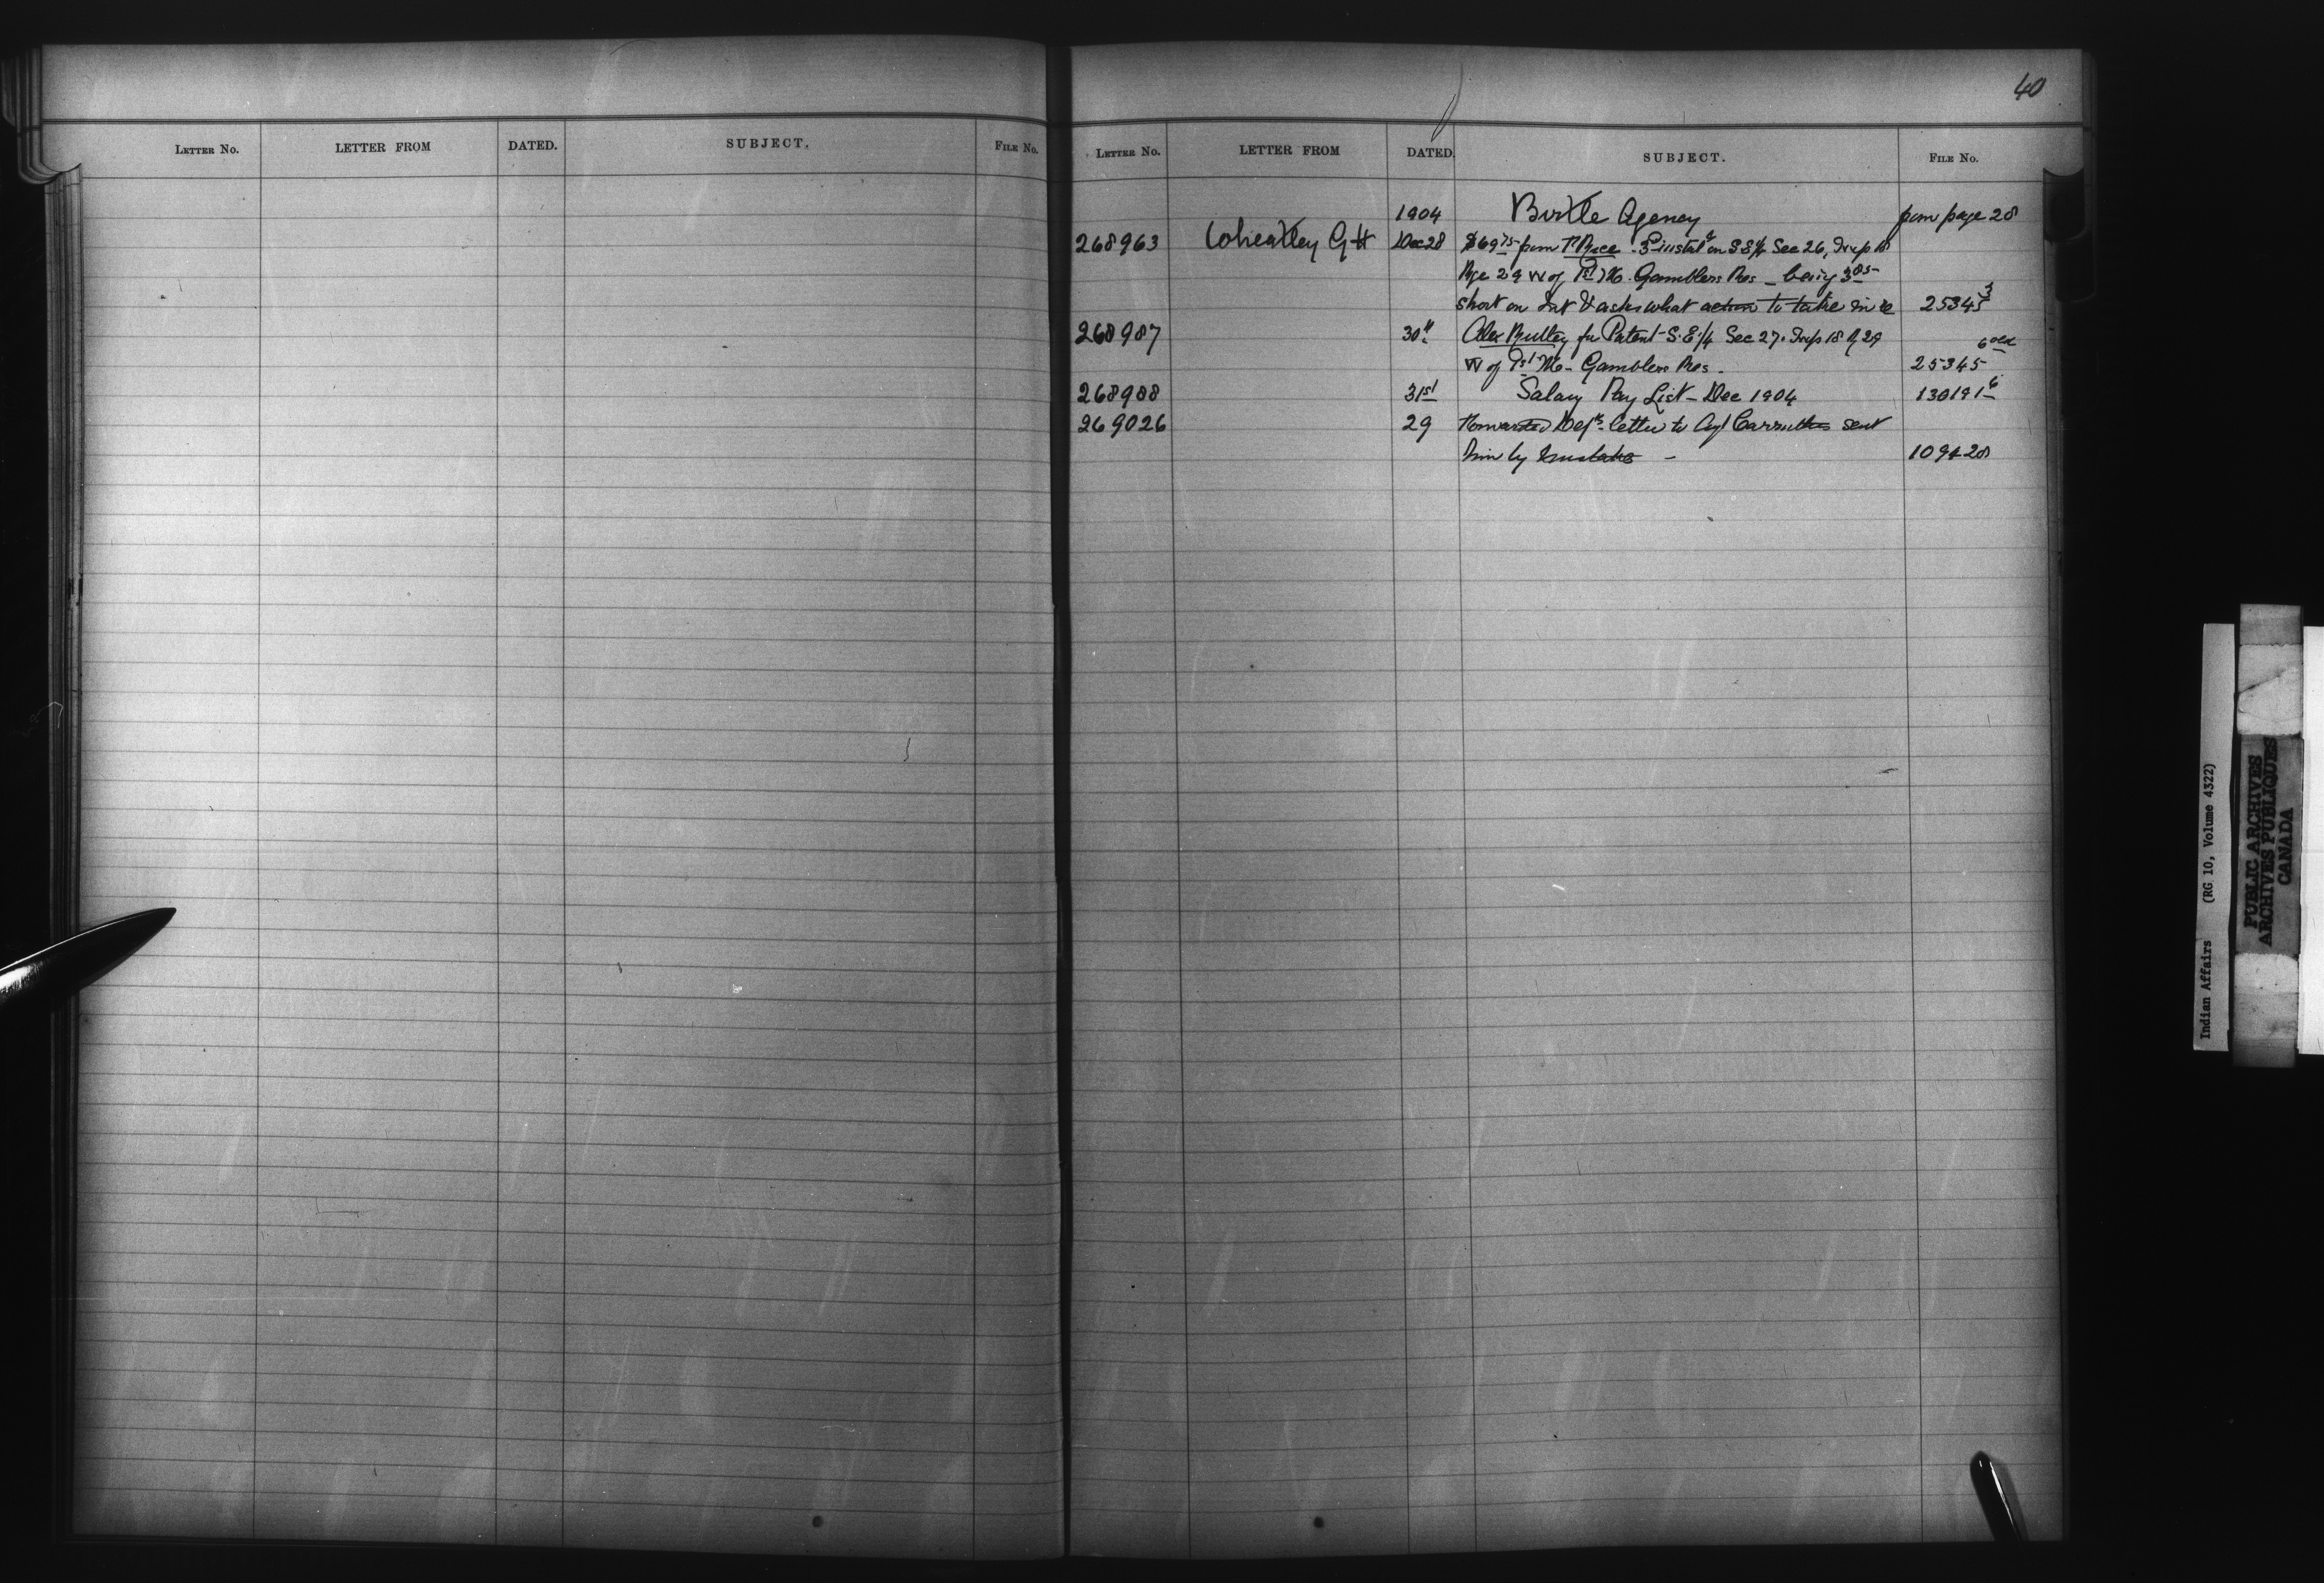 40
LETTER NO. LETTER FROM DATED. SUBJECT. FILE NO.
LETTER NO. LETTER FROM DATED. SUBJECT. FILE NO.
1904 Birtle Agency from page 28
268963 Wheatley G H Dec 28 $69 75 from 3 instal on S E ¼ Sec 26,
Rge 29 W of 1st M. Gamblers Res - being 3 85
short on Int & asks what action to take in re 25345 3
268987 30" Alex for Patent S.E ¼ Sec 27. Twp 18 R 29 6 old
W of 1st M - Gamblers Res. 25345
268988 31st Salary Pay List - Dec 1904 130191 6
269026 29 Forwarded Dept. letter to Agt Carruthers sent
him by mistake - 109428
Indian Affairs (RG 10, Volume 4322)
PUBLIC ARCHIVES
ARCHIVES PUBLIQUES
CANADA